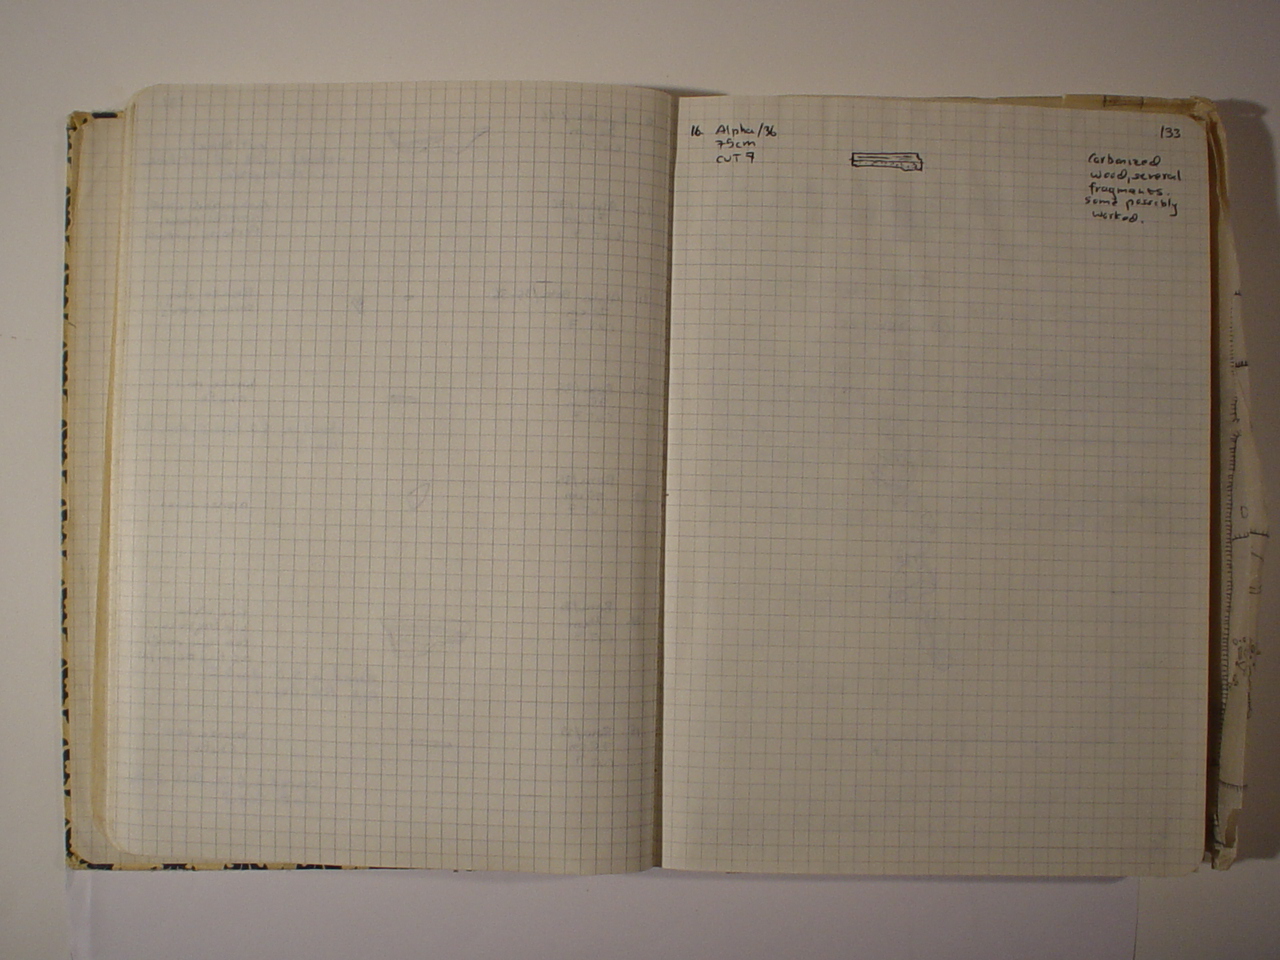 16. Alpha/36
75cm
CUT 9
133
Carbonized
wood, several
fragments.
Some possibly
worked.